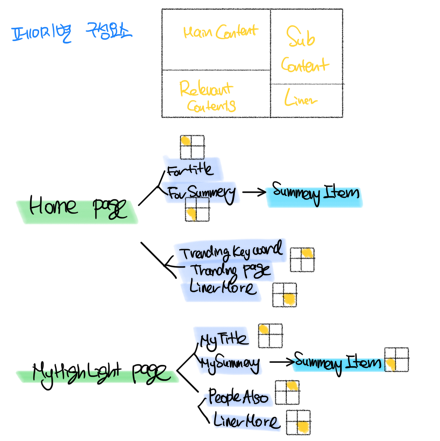 페이지별 구성요소
Main Content
Sub Content
Relevant Contents
Liner
ForTitle
Home page
ForSummery
Summery Item
Trending Keyword
Tranding page
LinerMore
MyTitle
MyHighLight page
MySummary
Summery Item
PeopleAlso
LinerMore